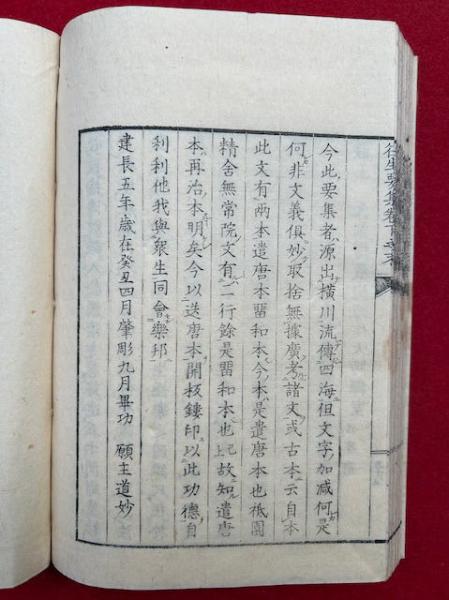 往生要集卷下之末
今此要集者源出橫川流傳四海但文字加減何是
何非文義俱妙取捨無據廣考諸文或古本云自本
此文有兩本遣唐本留和本今本是遣唐本也祇園
精舍無常院文有一行餘是留和本也已上故知遣唐
本再治本明矣今以送唐本開板鏤印以此功德自
利利他我與衆生同會樂邦
建長五年歲在癸丑四月肇彫九月畢功　願主道妙